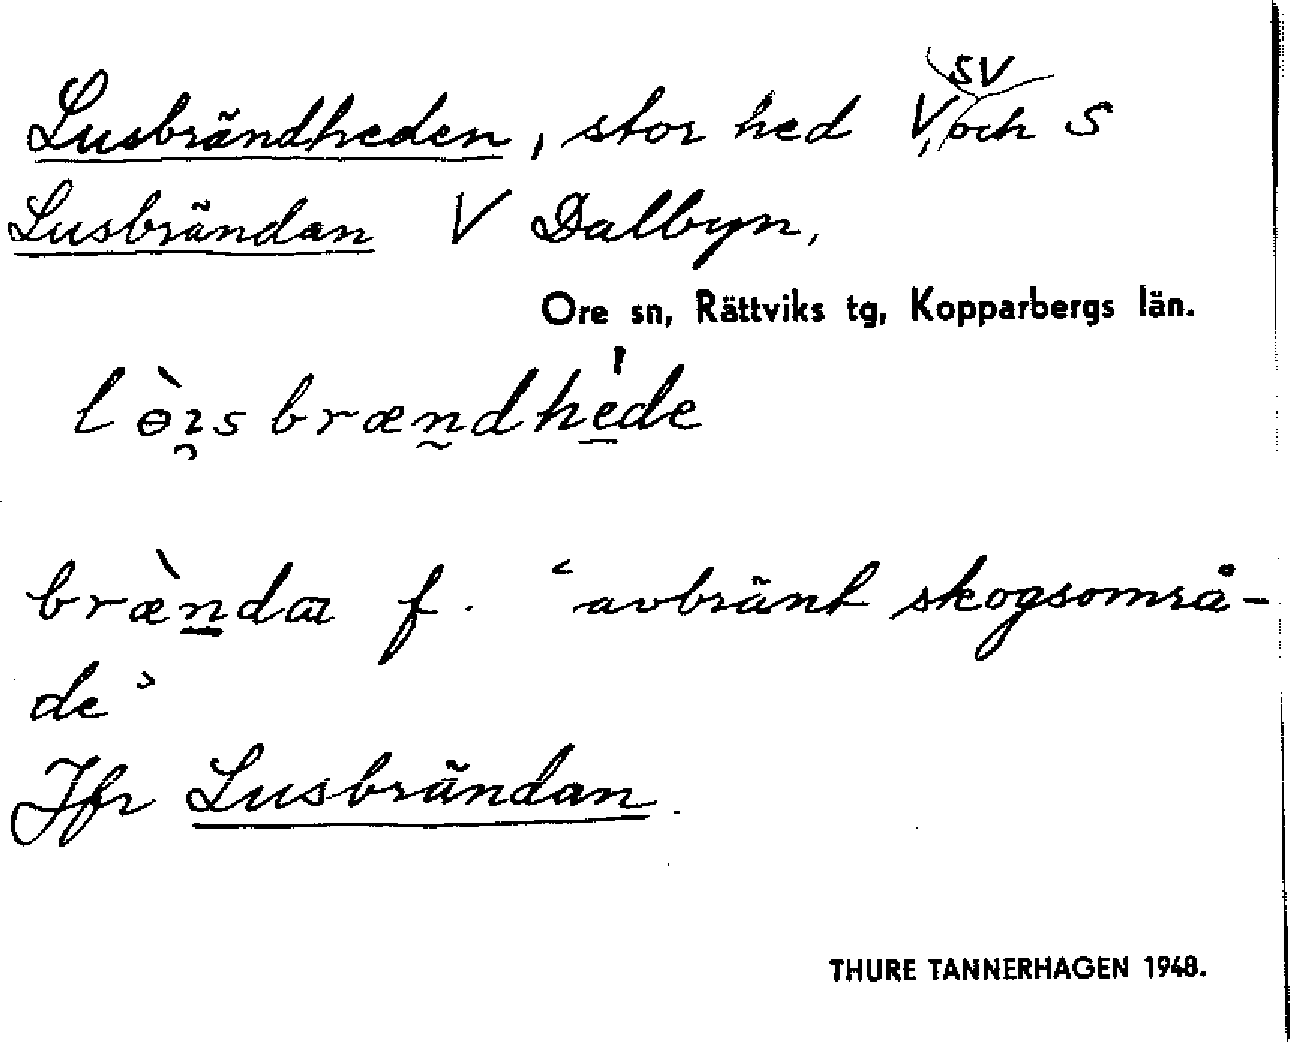 Lusbrändheden, stor hed V, SV och S
Lusbrändan V Dalbyn,
Ore sn, Rättviks tg, Kopparbergs län.
lə̀ısbrændhéde
brændɑ f. ‘avbränt skogsområ-
de’
Jfr Lusbrändan.
THURE TANNERHAGEN 1948.